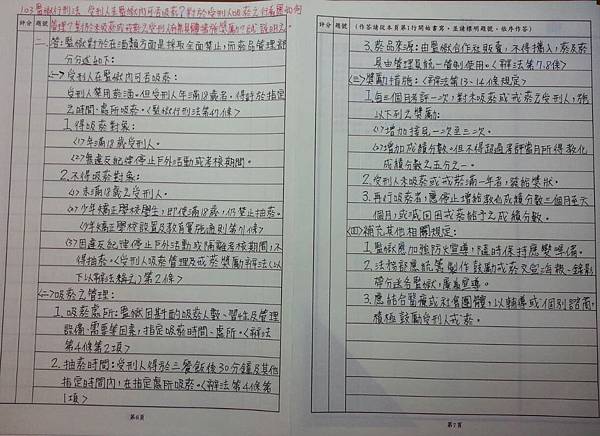 103監獄行刑法 受刑人在監獄內可否吸菸?對於受刑人吸菸之行為應如何
管理?對於未吸菸或戒菸之受刑人有無具體措施獎勵?試說明之。
評分 題號
二、答:監獄對於在酒類方面是採取全面禁止,而菸品管理部
分分述如下:
(一)受刑人在監獄內可否吸菸:
受刑人禁用菸酒。但受刑人年滿18歲者,得許於指定
之時間、處所吸菸。(監獄行刑法第47條)
1.得吸菸對象:
(1)年滿18歲受刑人。
(2)無違反紀律停止戶外活動或考核期間。
2.不得吸菸對象:
(1)未滿18歲之受刑人。
(2)少年矯正學校學生,即使滿18歲,仍禁止抽菸。
(少年矯正學校設置及教育實施通則第7條)
(3)因違反紀律停止戶外活動或隔離考核期間,不
得抽菸。(受刑人吸菸管理及戒菸獎勵辦法(以
下以辦法稱之)第2條)
(二)吸菸之管理:
1.吸菸處所:監獄因斟酌吸菸人數、習性及管理
設備、需要等因素,指定吸菸時間、處所。(辦法
第4條第2項)
2.抽菸時間:受刑人得於三餐飯後30分鐘及其他
指定時間內,在指定處所吸菸。(辦法第4條第
1項)
第6頁
評分 題號 (作答請從本頁第1行開始書寫,並請標明題號,依序作答)
3.菸品來源:由監獄合作社販賣,不得攜入,菸及菸
具由管理員統一管制使用。(辦法第7、8條)
(三)獎勵措施:(辦法第13、14條規定)
1.每三個月考評一次,對未吸菸或戒菸之受刑人,施
以下列之獎勵:
(1)增加接見一次至三次。
(2)增加成績分數。但不得超過考評當月所得教化
成績分數之五分之一。
2.受刑人未吸菸或戒菸滿一年者,發給獎狀。
3.再行吸菸者,應停止增給教化成績分數三個月至六
個月,或減回因戒菸給予之成績分數。
(四)補充其他相關規定:
1.監獄應加強防火宣導,隨時保持應變準備。
2.法務部應統籌製作鼓勵戒菸文宣海報、錄影
帶分送各監獄,廣為宣導。
3.應結合醫療或社會團體,以輔導或個別諮商,
積極鼓勵受刑人戒菸。
第7頁